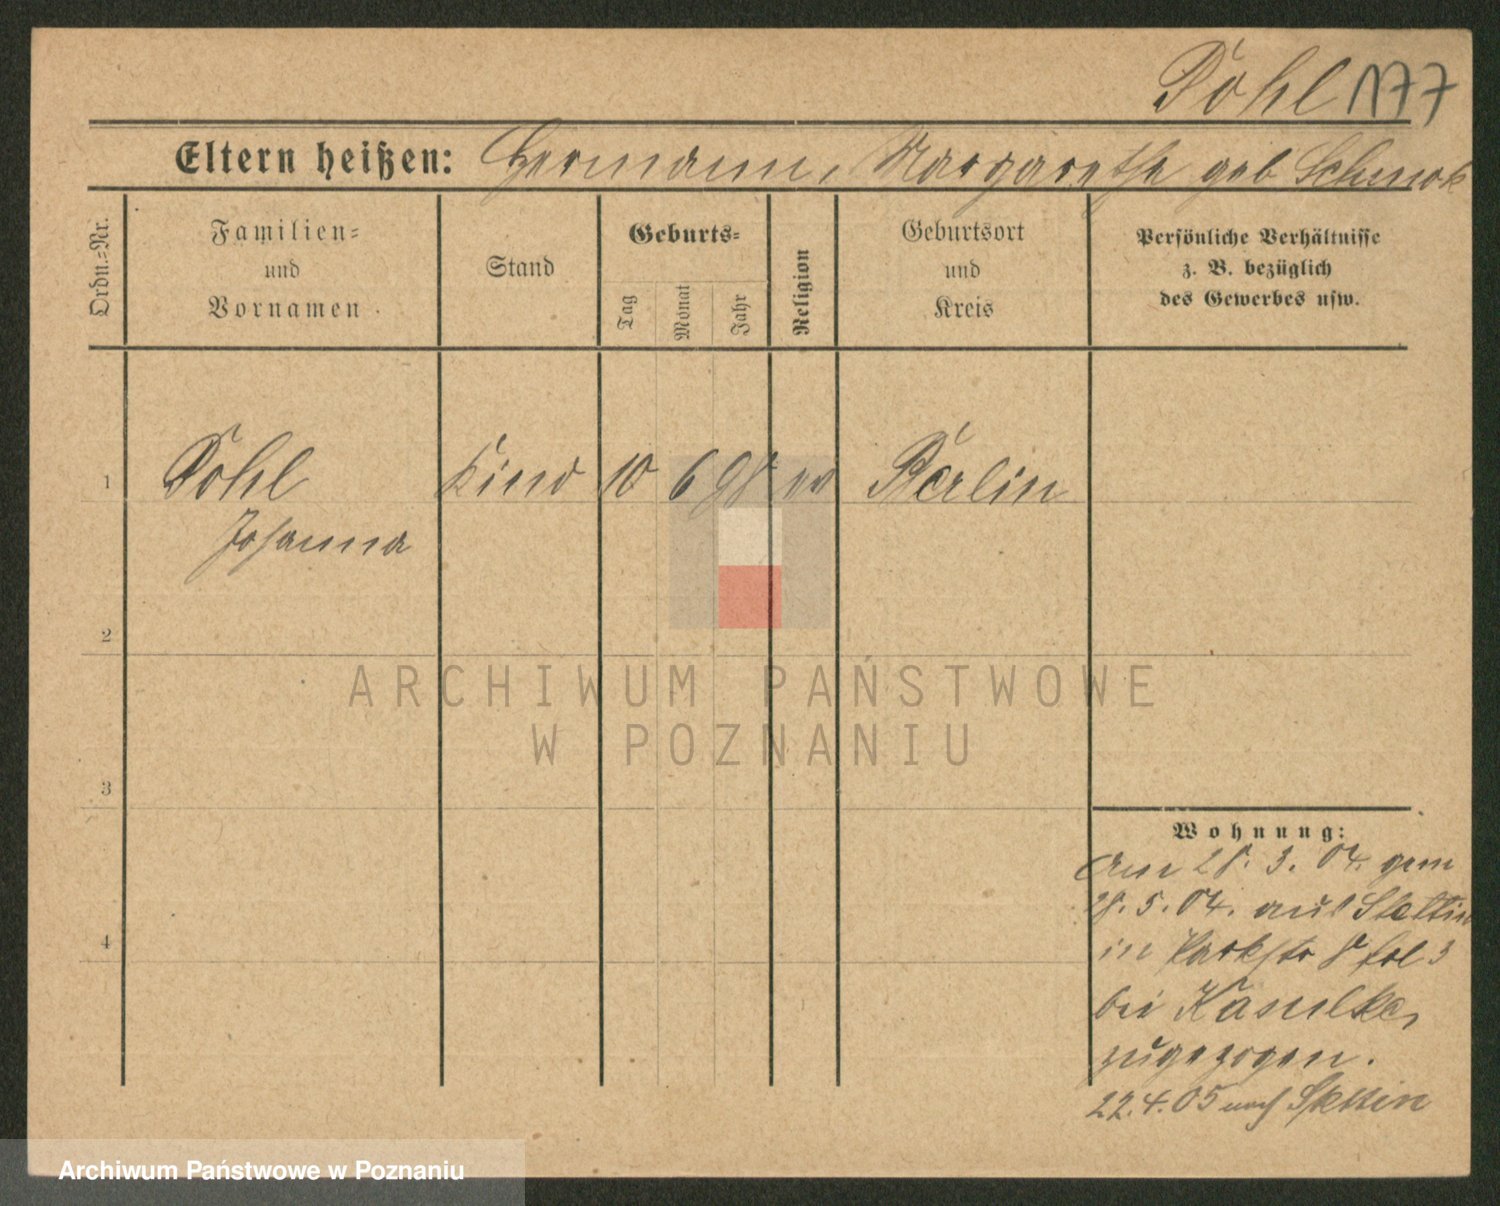 Pohl 177
Eltern heißen: Hermann, Margarethe geb Schmok
Ordn.=Nr.
Familien=
und
Vornamen
Stand
Geburts=
Tag
Monat
Jahr
Religion
Geburtsort
und
Kreis
Persönliche Verhältnisse
z. B. bezüglich
des Gewerbes usw.
1 Pohl Kind 10 6 98 ev Berlin
Johanna
2
3
4
Wohnung:
Am 28. 3. 04. gem
28. 5. 04. aus Stettin
in Parkstr 8
bei
zugezogen.
22.4.05 nach Stettin
ARCHIWUM PAŃSTWOWE
W POZNANIU
Archiwum Państwowe w Poznaniu